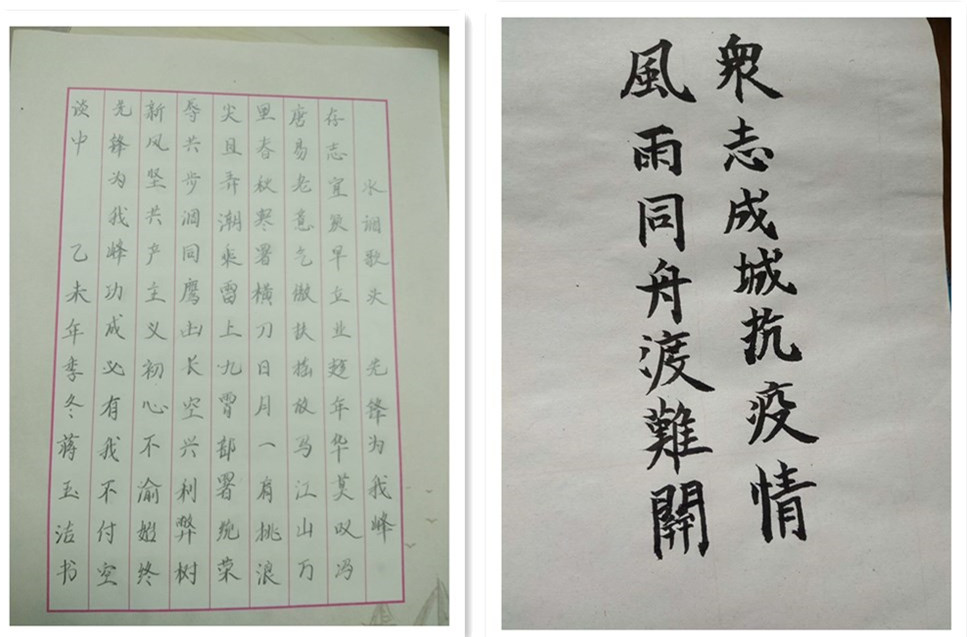 水调歌头 先锋为我峰
存志宜早立业趁年华莫叹冯
唐易老意气傲扶摇放马江山万
里春秋寒暑横刀日月一肩挑浪
尖且弄潮乘雷上九霄部署统荣
辱共步调同鹰出长空兴利弊树
新风坚共产主义初心不渝始终
先锋为我峰功成必有我不付空
谈中 乙未年季冬蒋玉洁书
衆志成城抗疫情
風雨同舟渡難關